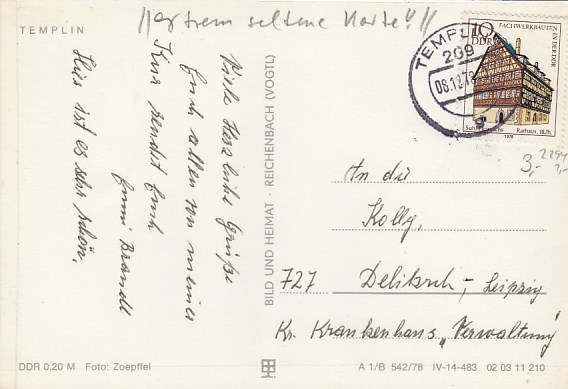 //extrem seltene Karte!!//
TEMPLIN
Viele Herzliche Grüße
Euch allen von meiner
Kur sendet Euch
Emmi Brandt
Hier ist es sehr schön.
BILD UND HEIMAT · REICHENBACH (VOGTL)
TEMPLIN
209
08.12.78
10
DDR
FACHWERKBAUTEN
IN DER DDR
Rathaus, 18. Jh.
1978
3,-
An die
Kolln,
727 Delitzsch, Leipzig
Kr. Krankenhaus „Verwaltung"
DDR 0,20 M Foto: Zoepffel
A 1/B 542/78 IV-14-483 02 03 11 210